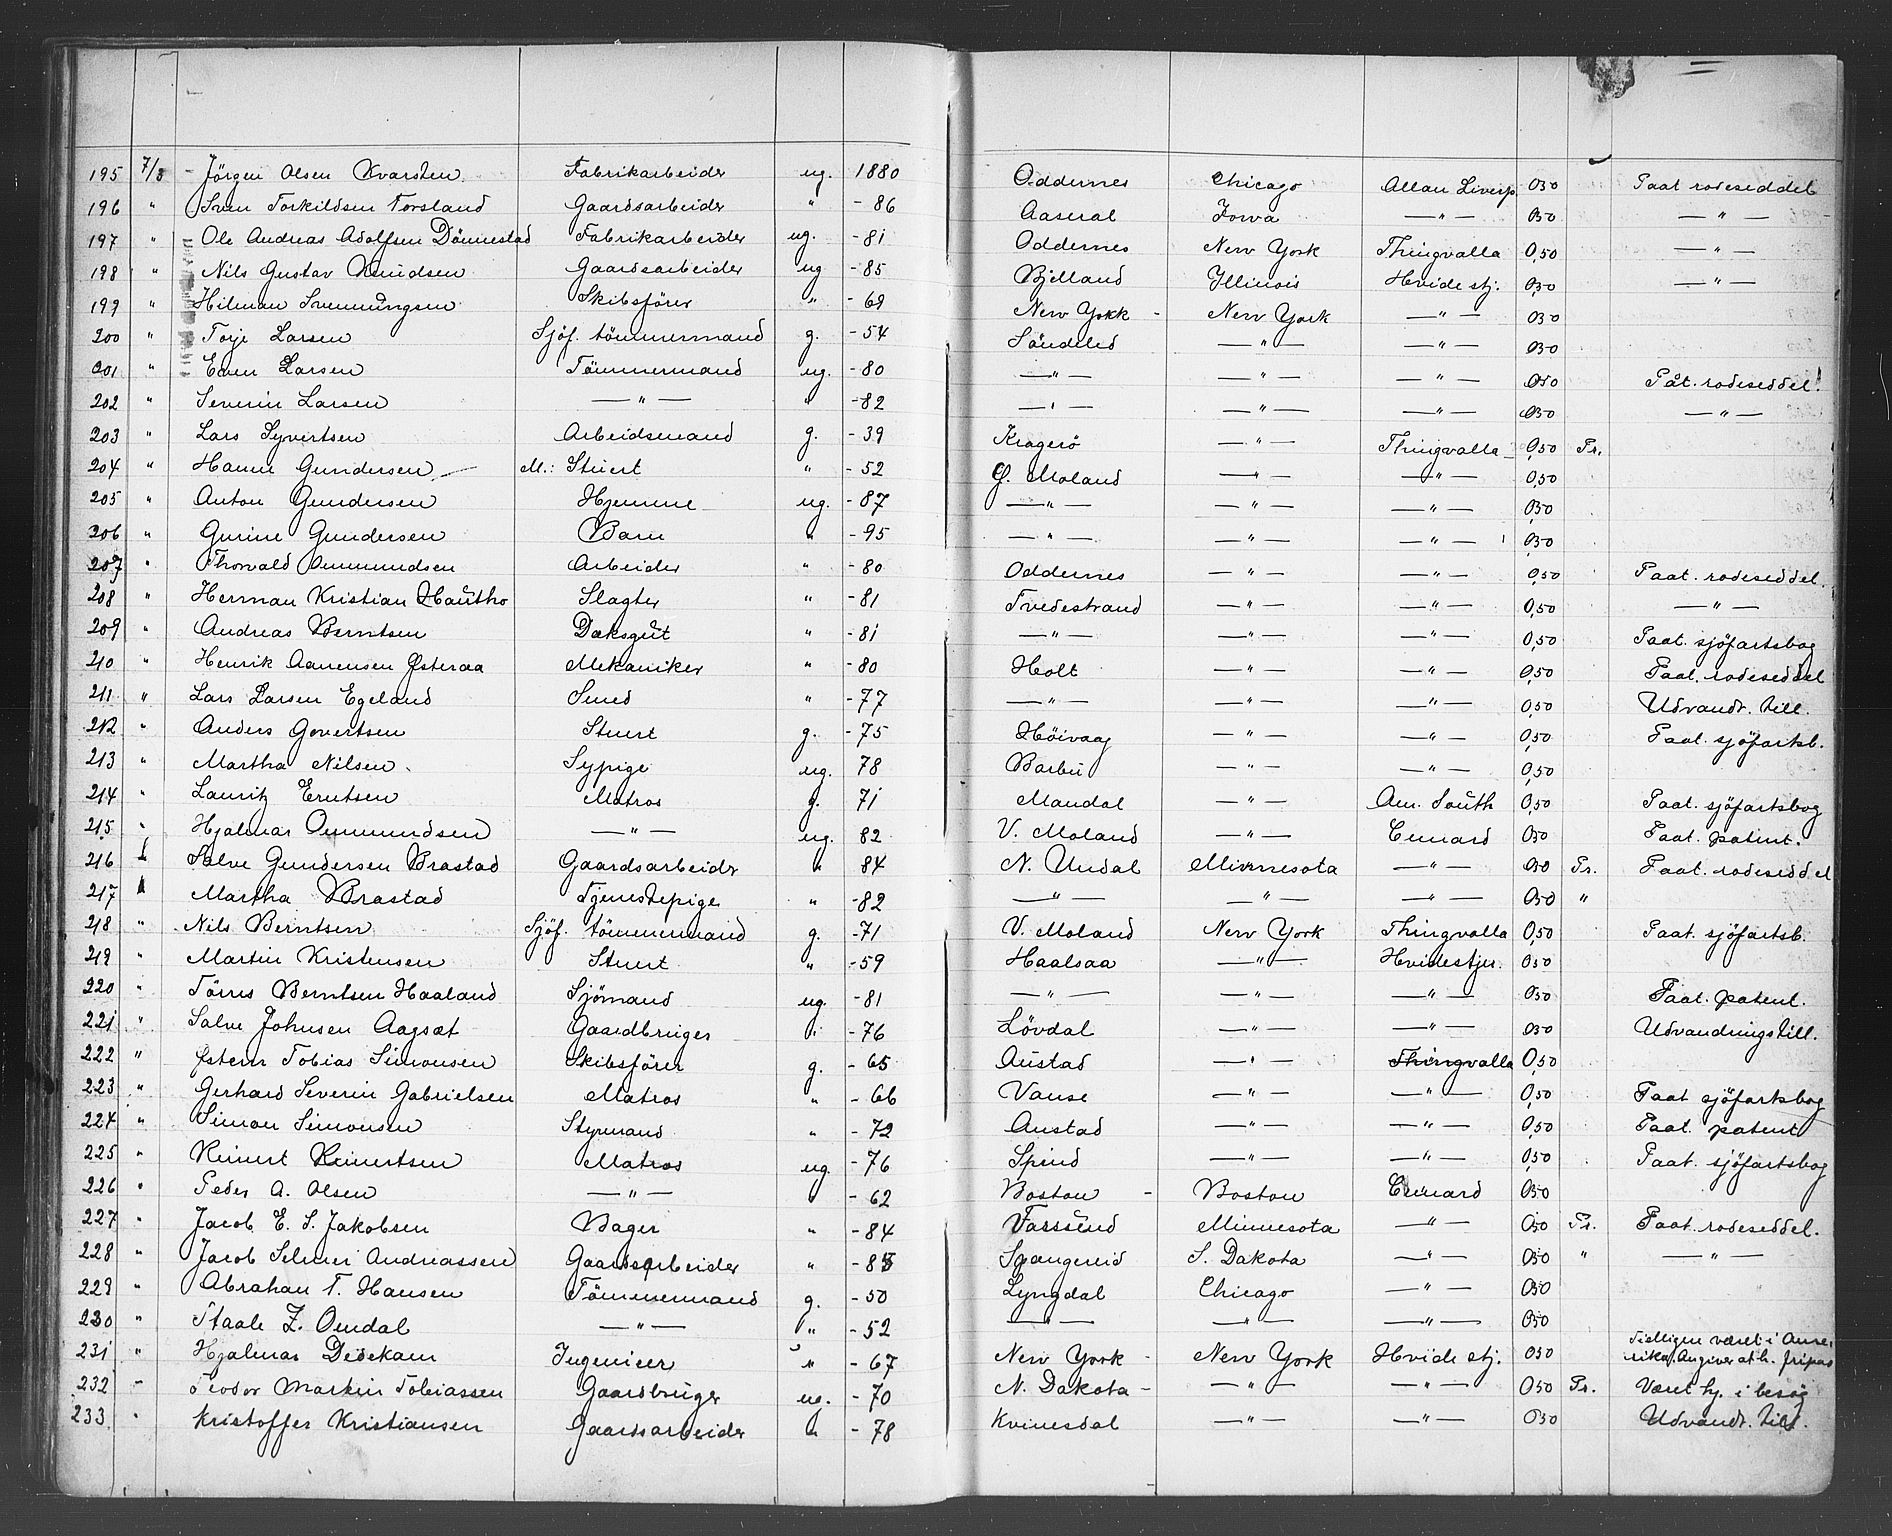 195 7/3 - Jörgen Olsen Kvarsten Fabrikarbeider ug. 1880 Oddernes Chicago Allan Liverp. 050 Paat rodeseddel
196 " Sven Torkildsen Torsland Gaardsarbeider " - 86 Aaseral Jowa —"— 050 —"—
197 " Ole Andreas Adolfsen Dönnestad Fabrikarbeider ug. - 81 Oddernes New York Thingvalla 0,50 —"—
198 " Nils Gustav Knudsen Gaardsarbeider ug - 85 Bjelland Jllinois Hvide stj. 0,50 —"—
199 " Hilman Svenningsen Skibsförer " - 69 New York - New York —"— 050
200 " Torje Larsen Sjöf. tömmermand g. - 54 Söndeled —"— —"— 050
201 " Even Larsen Tömmermand ug. - 80 —"— —"— —"— 050 Påt. rodeseddel.
202 " Severin Larsen —"— " - 82 —"— —"— —"— 050 —"—
203 " Lars Syvertsen Arbeidsmand g. - 39 Kragerö —"— Thingvalla 0,50 Pr.
204 " Hanne Gundersen M.: Stuert " - 52 Ö. Moland —"— —"— 0,50
205 " Anton Gundersen Hjemme ug. - 87 —"— —"— —"— 050
206 " Gurine Gundersen Barn " - 95 —"— —"— —"— 050
207 " Thorvald Ommundsen Arbeider " - 80 Oddernes —"— —"— 0,50 Paat. rodeseddel.
208 " Herman Kristian Hautho Slagter " - 81 Tvedestrand —"— —"— 0,50 —"—
209 " Andreas Berntsen Dæksgut " - 81 —"— —"— —"— 0,50 Paat. sjöfartsbog
210 " Henrik Aanensen Østeraa Mekaniker " - 80 Holt —"— —"— 0,50 Paat. rodeseddel
211 " Lars Larsen Egeland Smed " - 77 —"— —"— —"— 0,50 Udvandr. till.
212 " Anders Govertsen Stuert g. - 75 Höivaag —"— —"— 0,50 Paat. sjöfartsb.
213 " Martha Nilsen. Sypige ug. 78 Barbu —"— —"— 0,50
214 " Lauritz Erntsen Matros g. 71 Mandal —"— Am. South 0,50 Paat. sjöfartsbog
215 " Hjalmar Ommundsen —"— ug. 82 V. Moland —"— Cunard 050 Paat. patent.
216 " Salve Gundersen Brastad Gaardsarbeider " 84 N. Undal Minnesota —"— 050 Pr. Paat. rodeseddel
217 " Martha Brastad Tjenestepige " - 82 —"— —"— —"— 050 "
218 " Nils Berntsen Sjöf. tömmermand g. - 71 V. Moland New York Thingvalla 0,50 Paat. sjöfartsb.
219 " Martin Kristensen Stuert " - 59 Haalsaa —"— Hvidestjer. 050
220 " Törres Berntsen Haaland Sjömand ug. - 81 —"— —"— —"— 050 Paat. patent.
221 " Salve Johnsen Aagsæt Gaardbruger " - 76 Lövdal —"— —"— 050 Udvandringstill.
222 " Østern Tobias Simonsen Skibsförer g. - 65 Austad —"— Thingvalla 0,50
223 " Gerhard Severin Gabrielsen Matros " - 66 Vanse —"— —"— 0,50 Paat sjöfartsbog
224 " Simon Simonsen Styrmand " - 72 Austad —"— —"— 0,50 Paat. patent
225 " Reinert Reinertsen Matros ug. - 76 Spind —"— —"— 0,50 Paat. sjöfartsbog
226 " Peder A. Olsen —"— " - 62 Boston - Boston Cunard 050
227 " Jacob E. S. Jakobsen Bager " - 84 Farsund Minnesota —"— 050 Pr. Paat. rodeseddel.
228 " Jacob Selmer Andreassen Gaardsarbeider " - 83 Spangereid S. Dakota —"— 050 " —"—
229 " Abraham T. Hansen Tömmermand g. - 50 Lyngdal Chicago —"— 050
230 " Staale Z. Omdal —"— " - 52 —"— —"— —"— 050
231 " Hjalmar Dedekam Ingenieer " - 67 New York - New York Hvide stj. 050 Tidligere været i Ame-
rika. Angiver at h. fripas
232 " Teodor Martin Tobiassen Gaardbruger ug. - 70 N. Dakota - —"— —"— 050 Pr. Været hj. i besög
233 " Kristoffer Kristiansen Gaardsarbeider " - 78 Kvinesdal —"— —"— 050 Udvandr. till.